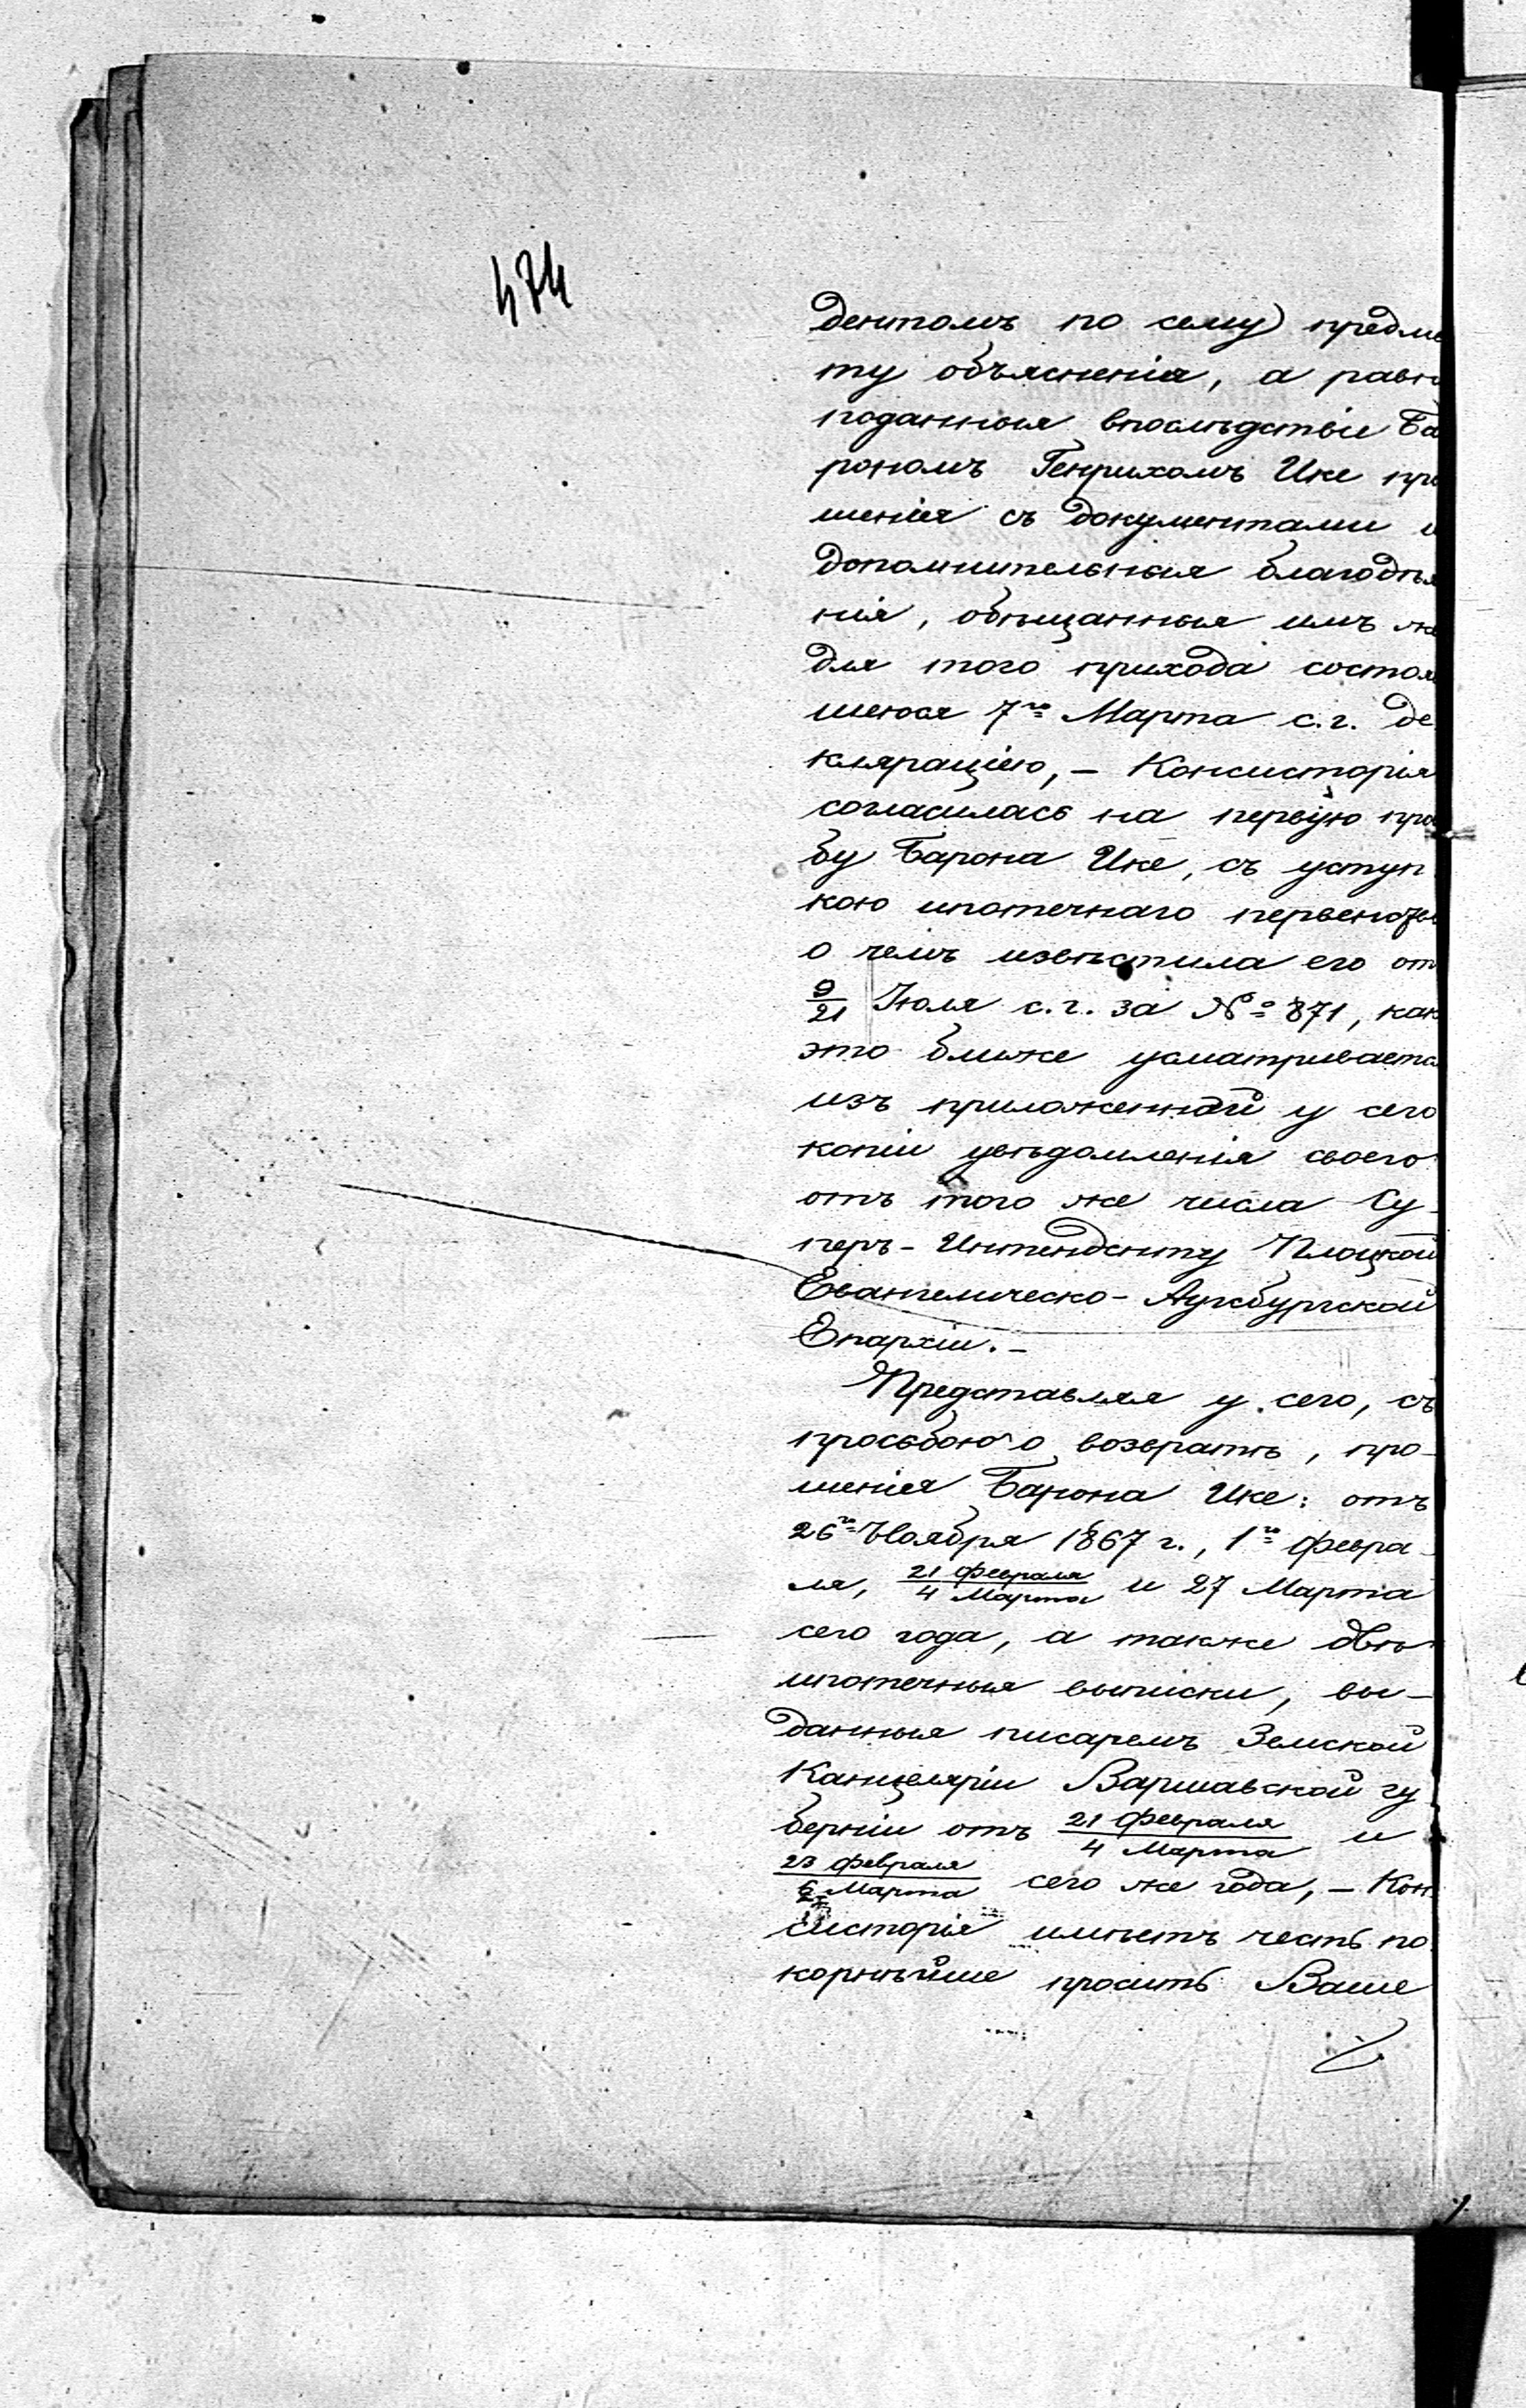 474
дентомъ по сему предме
ту объясненія, а равн
поданныя впослѣдствіе Ба
рономъ Генрихомъ Ике про
шенія съ документами и
дополнительныя благодѣя
нія, обѣщанныя имъ же
для того прихода состояв
шеюся 7го Марта с. г. де
клараціею, – Консисторія
согласилась на первую прос
бу Барона Ике, съ уступ
кою ипотечнаго первенства
о чемъ извѣстила его от
9/21 Іюля с. г. за № 871, как
это ближе усматривается
изъ приложенной у сего
копіи увѣдомленія своего
отъ того же числа Су-
перъ-Интенденту Плоцкой
Евангелическо-Аугсбургской
Епархіи. –
Представляя у сего, съ
просьбою о возвратѣ, про-
шенія Барона Ике: отъ
26го Ноября 1867 г., 1го Февра-
ля, 21 Февраля/4 Марта и 27 Марта
сего года, а также двѣ
ипотечныя выписки, вы-
данныя писаремъ Земской
Канцеляріи Варшавской гу
берніи отъ 21 Февраля/4 Марта и
23 Февраля/6 Марта сего же года, – Кон
систорія имѣетъ честь по
корнѣйше просить Ваше